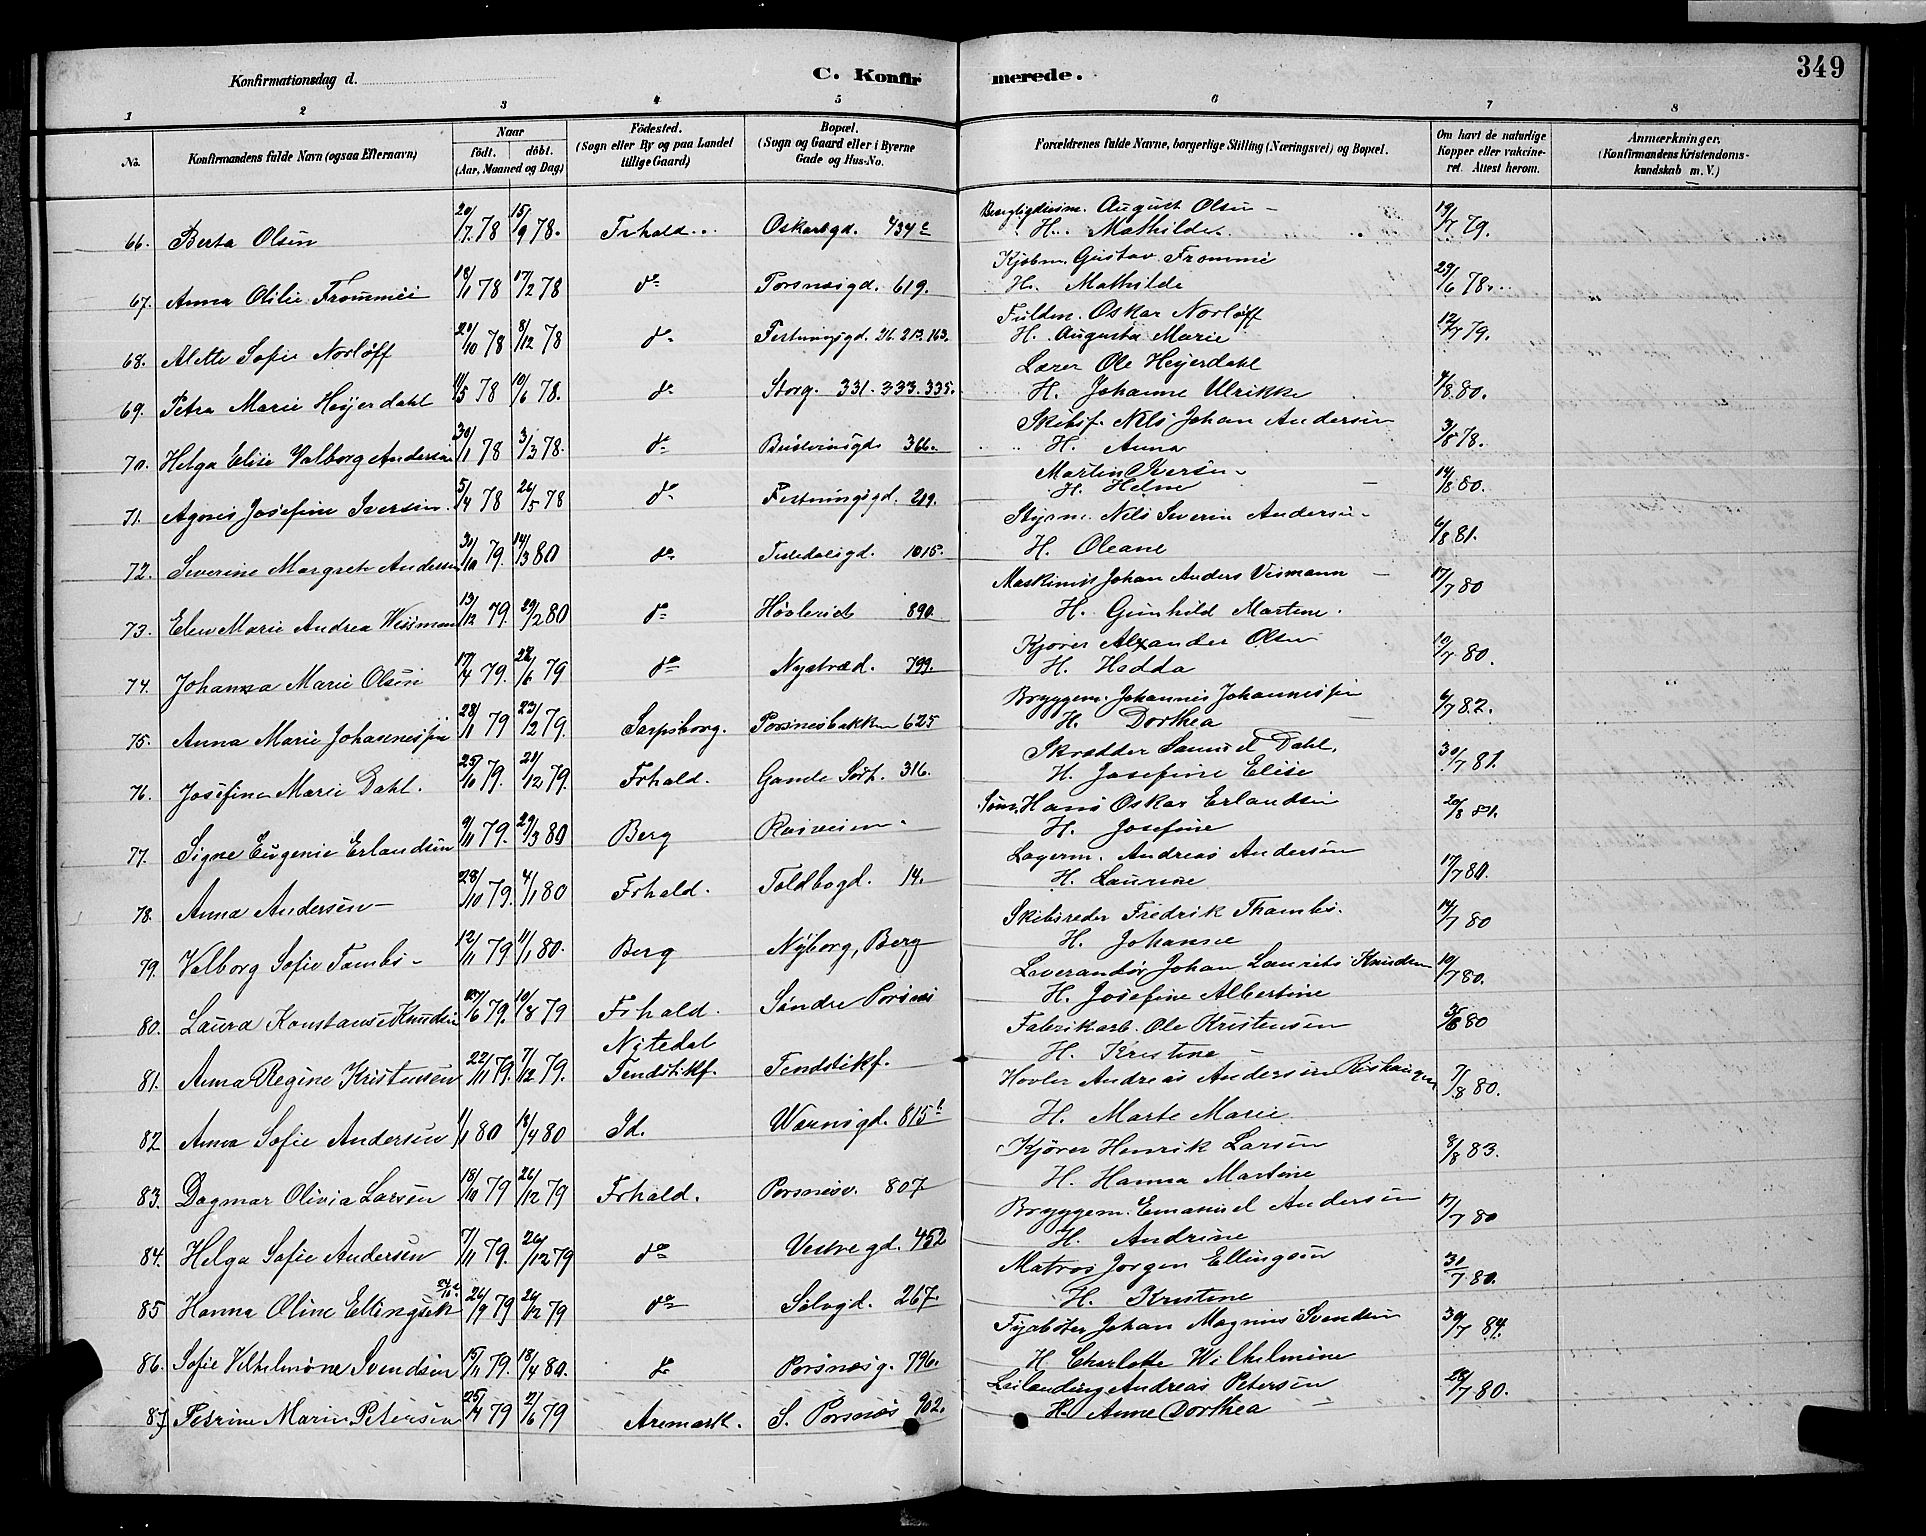 349
Konfirmationsdag d. C. Konfirmerede.
1 2 3 4 5 6 7 8
No. Konfirmandens fulde Navn (ogsaa Efternavn) Naar födt. döbt. (Aar, Maaned og Dag) Födested. (Sogn eller By og paa Landet tillige Gaard) Bopæl. (Sogn og Gaard eller i Byerne Gade og Hus-No. Forældrenes fulde Navne, borgerlige Stilling (Næringsvei) og Bopæl. Om havt de naturlige Kopper eller vakcineret. Attest herom. Anmærkninger. (Konfirmandens Kristendomskundskab m. V.)
66. Berta Olsen 20/7 78 15/9 78. Frhald. Oskarsgd. 434 c August Olsen 19/7 79.
H. Mathilde.
67. Anna Otilie Frommei 18/1 78 17/2 78 do Porsnæsgd. 619. Kjøbm. Gustav Frommè 29/6 78.
H. Mathilde
68. Alette Sofie Norløff 20/10 78 8/12 78 do Festningsgd. 26.213.163. Fuldm. Oskar Norløff 12/7 79.
H. Augusta Marie
69. Petra Marie Heyerdahl 11/5 78 10/6 78. do Storg. 331. 333. 335. Lærer Ole Heyerdahl 4/8 80.
H. Johanne Ulrikke
70. Helga Elise Valborg Andersen 30/1 78 3/3 78. do 366. Skibsf. Nils Johan Andersen 3/8 78.
H. Anna
71. Agnes Josefine Iversen 5/4 78 26/5 78 do Festningsgd. 219. Martin Iversen 14/8 80.
H. Helene
72. Severine Margrete Andersen 31/10 79. 14/3 80 do Tistedalsgd. 1015. Styrm. Nils Severin Andersen 6/8 81.
H. Oleane
73. Elen Marie Andrea Weismann 13/12 79. 29/2 80 do Høvleriet 890. Maskinnis Johan Anders Veismann 17/7 80
H. Gunhild Martine.
74. Johanna Marie Olsen 17/4 79. 22/6 79 do Nystræd. 799. Kjører Alexander Olsen 12/7 80.
H. Hedda
75. Anna Marie Johannessen 28/1 79 23/2 79. Sarpsborg. Porsnesbakken 625 Bryggem. Johannes Johannessen 6/7 82.
H. Dorthea
76. Josefine Marie Dahl. 25/10 79. 21/12 79. Frhald. Gamle Sørh. 316. Skrædder Samuel Dahl. 30/7 81.
H. Josefine Elise
77. Signe Eugenie Erlandsen 9/11 79. 29/3 80 Berg Hans Oskar Erlandsen 20/8 81.
H. Josefine
78. Anna Andersen 28/10 79. 4/1 80 Frhald. Toldbogd. 14. Lagerm. Andreas Andersen 17/7 80.
H. Laurine
79. Valborg Sofie Tambs 12/11 79 11/1 80. Berg Nyborg, Berg Skibsreder Fredrik Thambs. 14/7 80
H. Johanne
80. Laura Konstanse Knudsen 27/6 79. 10/8 79 Frhald. Søndre Porsnes Leverandør Johan Laurits Knudsen 10/7 80.
H. Josefine Albertine
81. Anna Regine Kristensen 22/11 79. 7/12 79. Nitedal Tendstikf. Tendstikf. Fabrikarb. Ole Kristensen 3/6 80
H. Kristine
82 Anna Sofie Andersen 1/1 80 18/4 80 Id. Wærnsgd. 815 b Høvler Andreas Andersen Rishaugen 7/8 80.
H. Marte Marie
83. Dagmar Olivia Larsen 18/10 79 26/12 79 Frhald. Porsnesv. 807 Kjører Henrik Larsen 8/8 83.
H. Hanna Martine
84. Helga Sofie Andersen 7/11 79. 26/12 79 do Vestregd. 452 Bryggem. Emanuel Andersen 17/7 80
H. Andrine
85 Hanna Oline Ellingsen 26/9 79 26/12 79 do Sølvgd. 267. Matros Jørgen Ellingsen 31/7 80.
H. Kristine
86. Sofie Vilhelmine Svendsen 15/11 79. 18/4 80. do Porsnæsg. 796. Fyrbøter Johan Magnus Svendsen 30/7 84.
H. Charlotte Wilhelmine
87 Petrine Marie Petersen 25/4 79 2/6 79 Aremark. S. Porsnes 902. Andreas Petersen 28/7 80.
H. Anne Dorthea